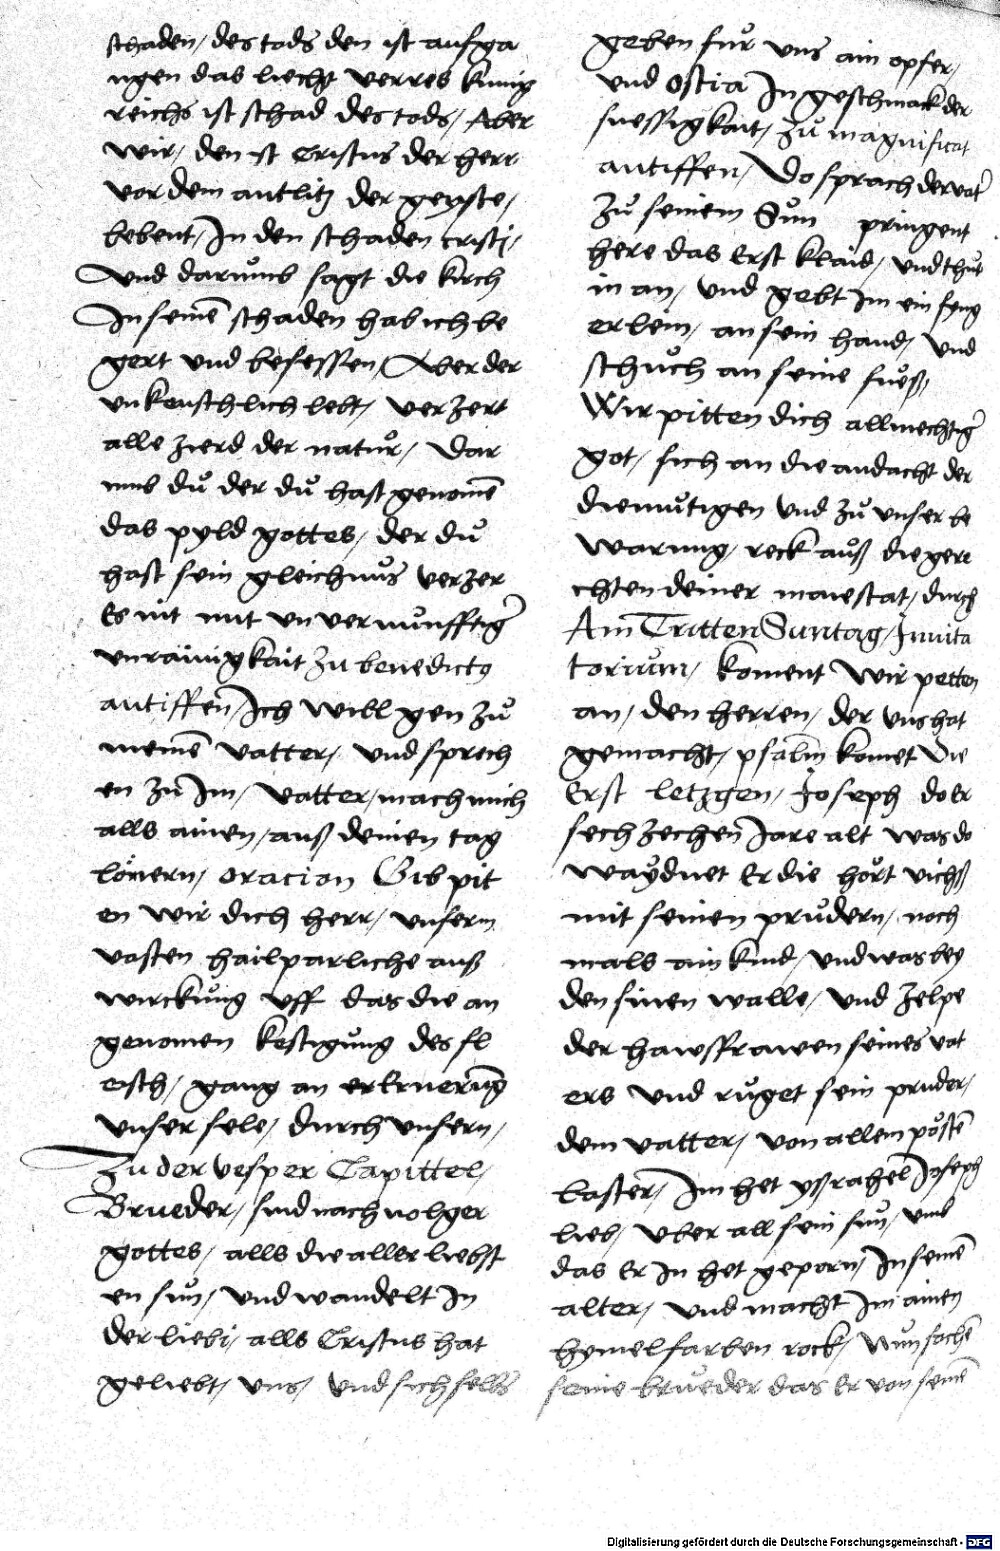 schaden / des tods den ist aufga
ngen das liecht verres kunig
reichs ist schad des tods / Aber
wir / den ist Cristus der herr
vor dem antlitz der geyste /
bebent / In den schaden cristj /
Und darůmb sagt die kirch
In seinē schaden hab ich be
gert und besessen / Aber der
unkeuschlich lebt / verzert
alle zierd der natůr / Dar
umb dů der dů hast genomē
das pyld gottes / der dů
hast sein gleichnůs verzer
es nit mit unvernůnfftig̃
unrainigkait Zu benedictꝯ
antiffen / Ich will gen zů
meinē vatter / und sprech
en zů Im / vatter / mach mich
alls ainen / auß deinen tag
lönern / oracion Gib pit
en wir dich herr / unserm
vasten hailparliche auß
wirckůng uff das die an
genomen kestigůng des fl
eisch / gang an erkruerūg
unser sele / durch unsern /
Zu der vesper Capittel /
Brueder / sind nachvolger
gottes / alls die aller liebst
en sůn / und wandelt In
der liebi / alls Cristus hat
geliebt / uns / und sich selbs
geben fůr uns ain opfer /
und Ostia In geschmack der
suessigkait / Zů magnificat
antiffen / Do sprach der vatr̃
zů seinem Sůn pringent
here das Erst klaid / und thůt
in an / und gebt Im ein fyng
erlein / an sein hand / und
schůch an seine fůeß /
Wir pitten dich allmechtig̃
got / sich an die andacht der
diemůtigen und zů unser be
warung / reck auß die gere
chten deiner maiestat / durch
Am Tritten Suntag / Invita
torium / koment wir petten
an / den herren / der uns hat
gemacht / psalm komet Die
Erst letzgen / Joseph do Er
sechzechen Jare alt was do
waydnet Er die hört vichß
mit seinen průdern / noch
mals ain kind / und was bey
den sinen walle / und Zelpe
der hawsfrawen seines vat
ers und růget sein pruder /
dem vatter / von allem pöstē
laster / Im het ysrahel Joseph
lieb / uber all sein sůn / umb
das Er In het geporn / In seinē
alter / und macht Im ainen
hymelfarben rock / Nun sachē
seine brůeder das Er von seinē
Digitalisierung gefördert durch die Deutsche Forschungsgemeinschaft - DFG